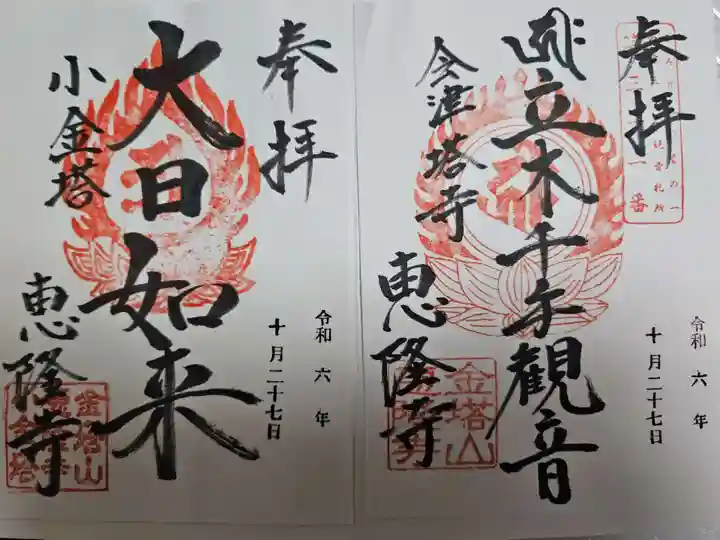 奉拝
立木千手観音
会津塔寺
恵隆寺
令和六年
十月二十七日
金塔山
奉拝
大日如来
小金塔
恵隆寺
令和六年
十月二十七日
金塔山